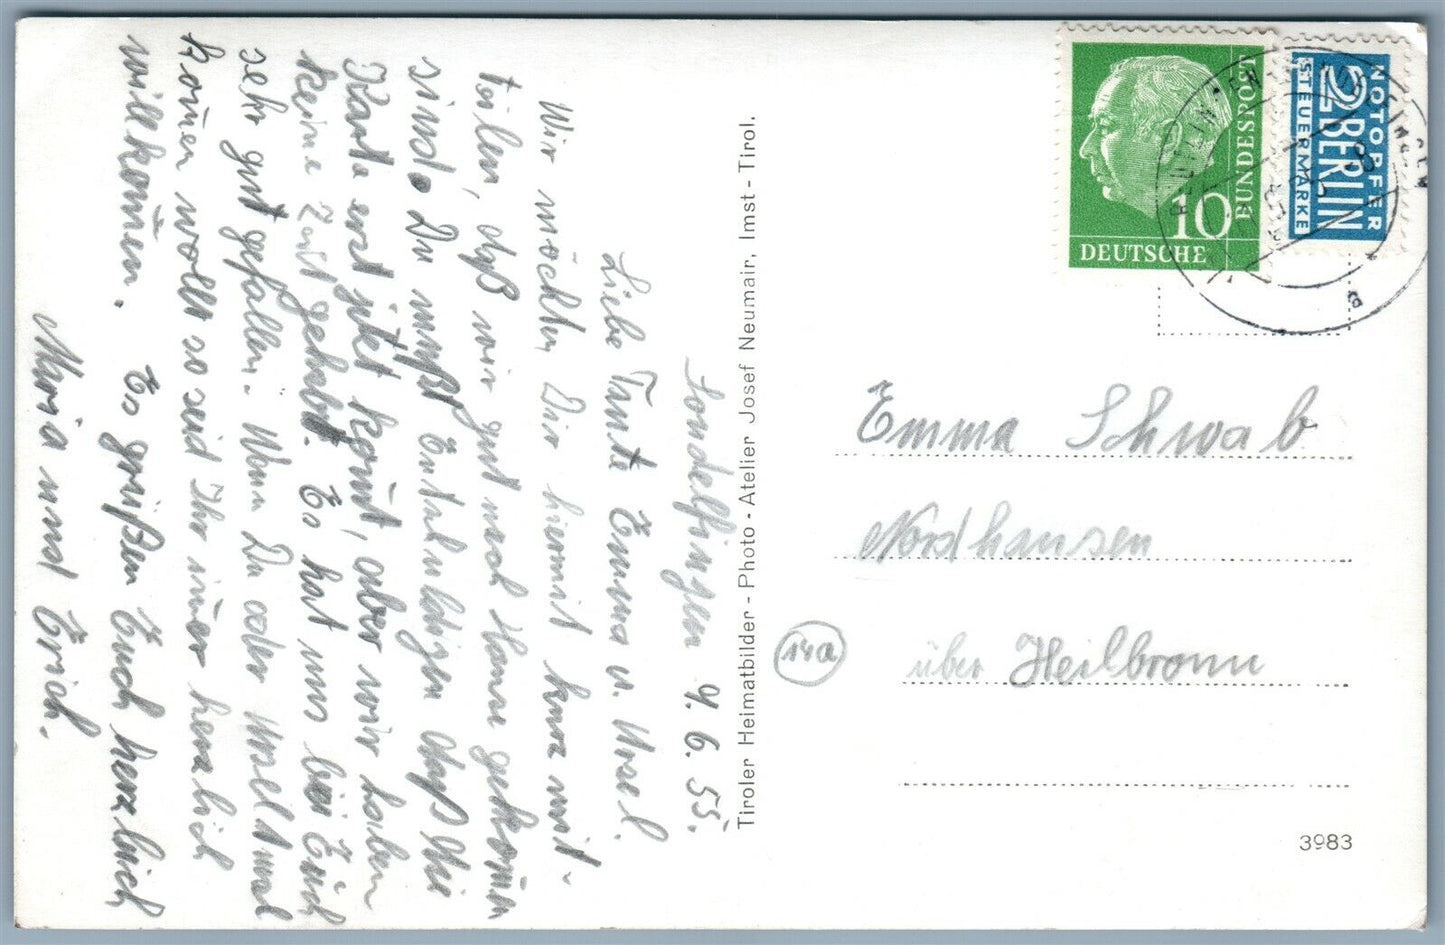 Sondelfingen 9. 6. 55.
Liebe Tante Emma u. Ursel.
Wir möchten Dir hiermit kurz mit-
teilen, daß wir gut nach Hause gekom̄en
sind. Du mußt Entschuldigen daß die
Karte erst jetzt kom̄t, aber wir haben
keine Zeit gehabt. Es hat uns bei Euch
sehr gut gefallen. Wenn Du oder Ursel 1mal
kom̄en wollt so seid Ihr im̄er herzlich
willkom̄en. Es grüßen Euch herzlich
Maria und Erich.
Tiroler Heimatbilder - Photo - Atelier Josef Neumair, Imst - Tirol.
10
DEUTSCHE
BUNDESPOST
NOTOPFER
2 BERLIN
STEUERMARKE
Emma Schwab
Nordhausen
14a
über Heilbronn
3983